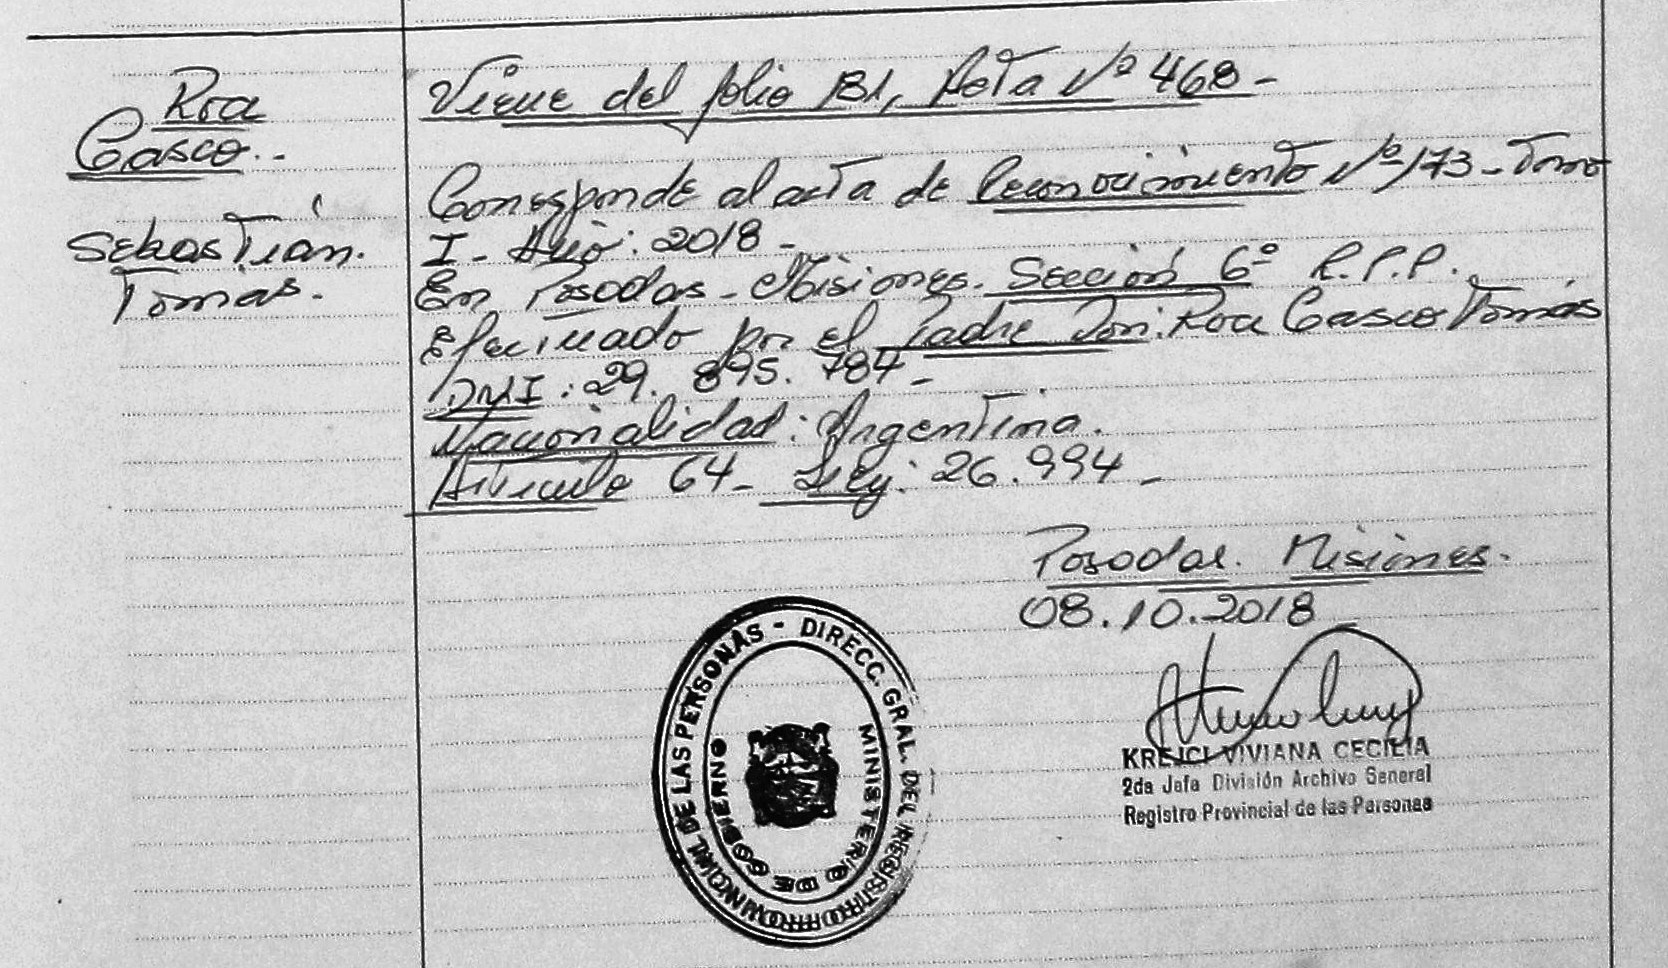 Roa
Gasco..
Sebastián.
Tomás.
Viene del folio 131, Acta Nº 468-
Corresponde al acta de Reconocimiento Nº 173- Tomo
I- Año: 2018-
En Posadas- Misiones. Sección 6º R.P.P.
Efectuado por el Padre Don: Roa Gasco Tomás
DNI: 29.895.784-
Nacionalidad: Argentina.
Artículo 64- Ley: 26.994-
Posadas. Misiones.
08.10.2018
KREJCI VIVIANA CECILIA
2da Jefa División Archivo General
Registro Provincial de las Personas
DIRECC. GRAL. DEL REGISTRO PROVINCIAL DE LAS PERSONAS -
MINISTERIO DE GOBIERNO